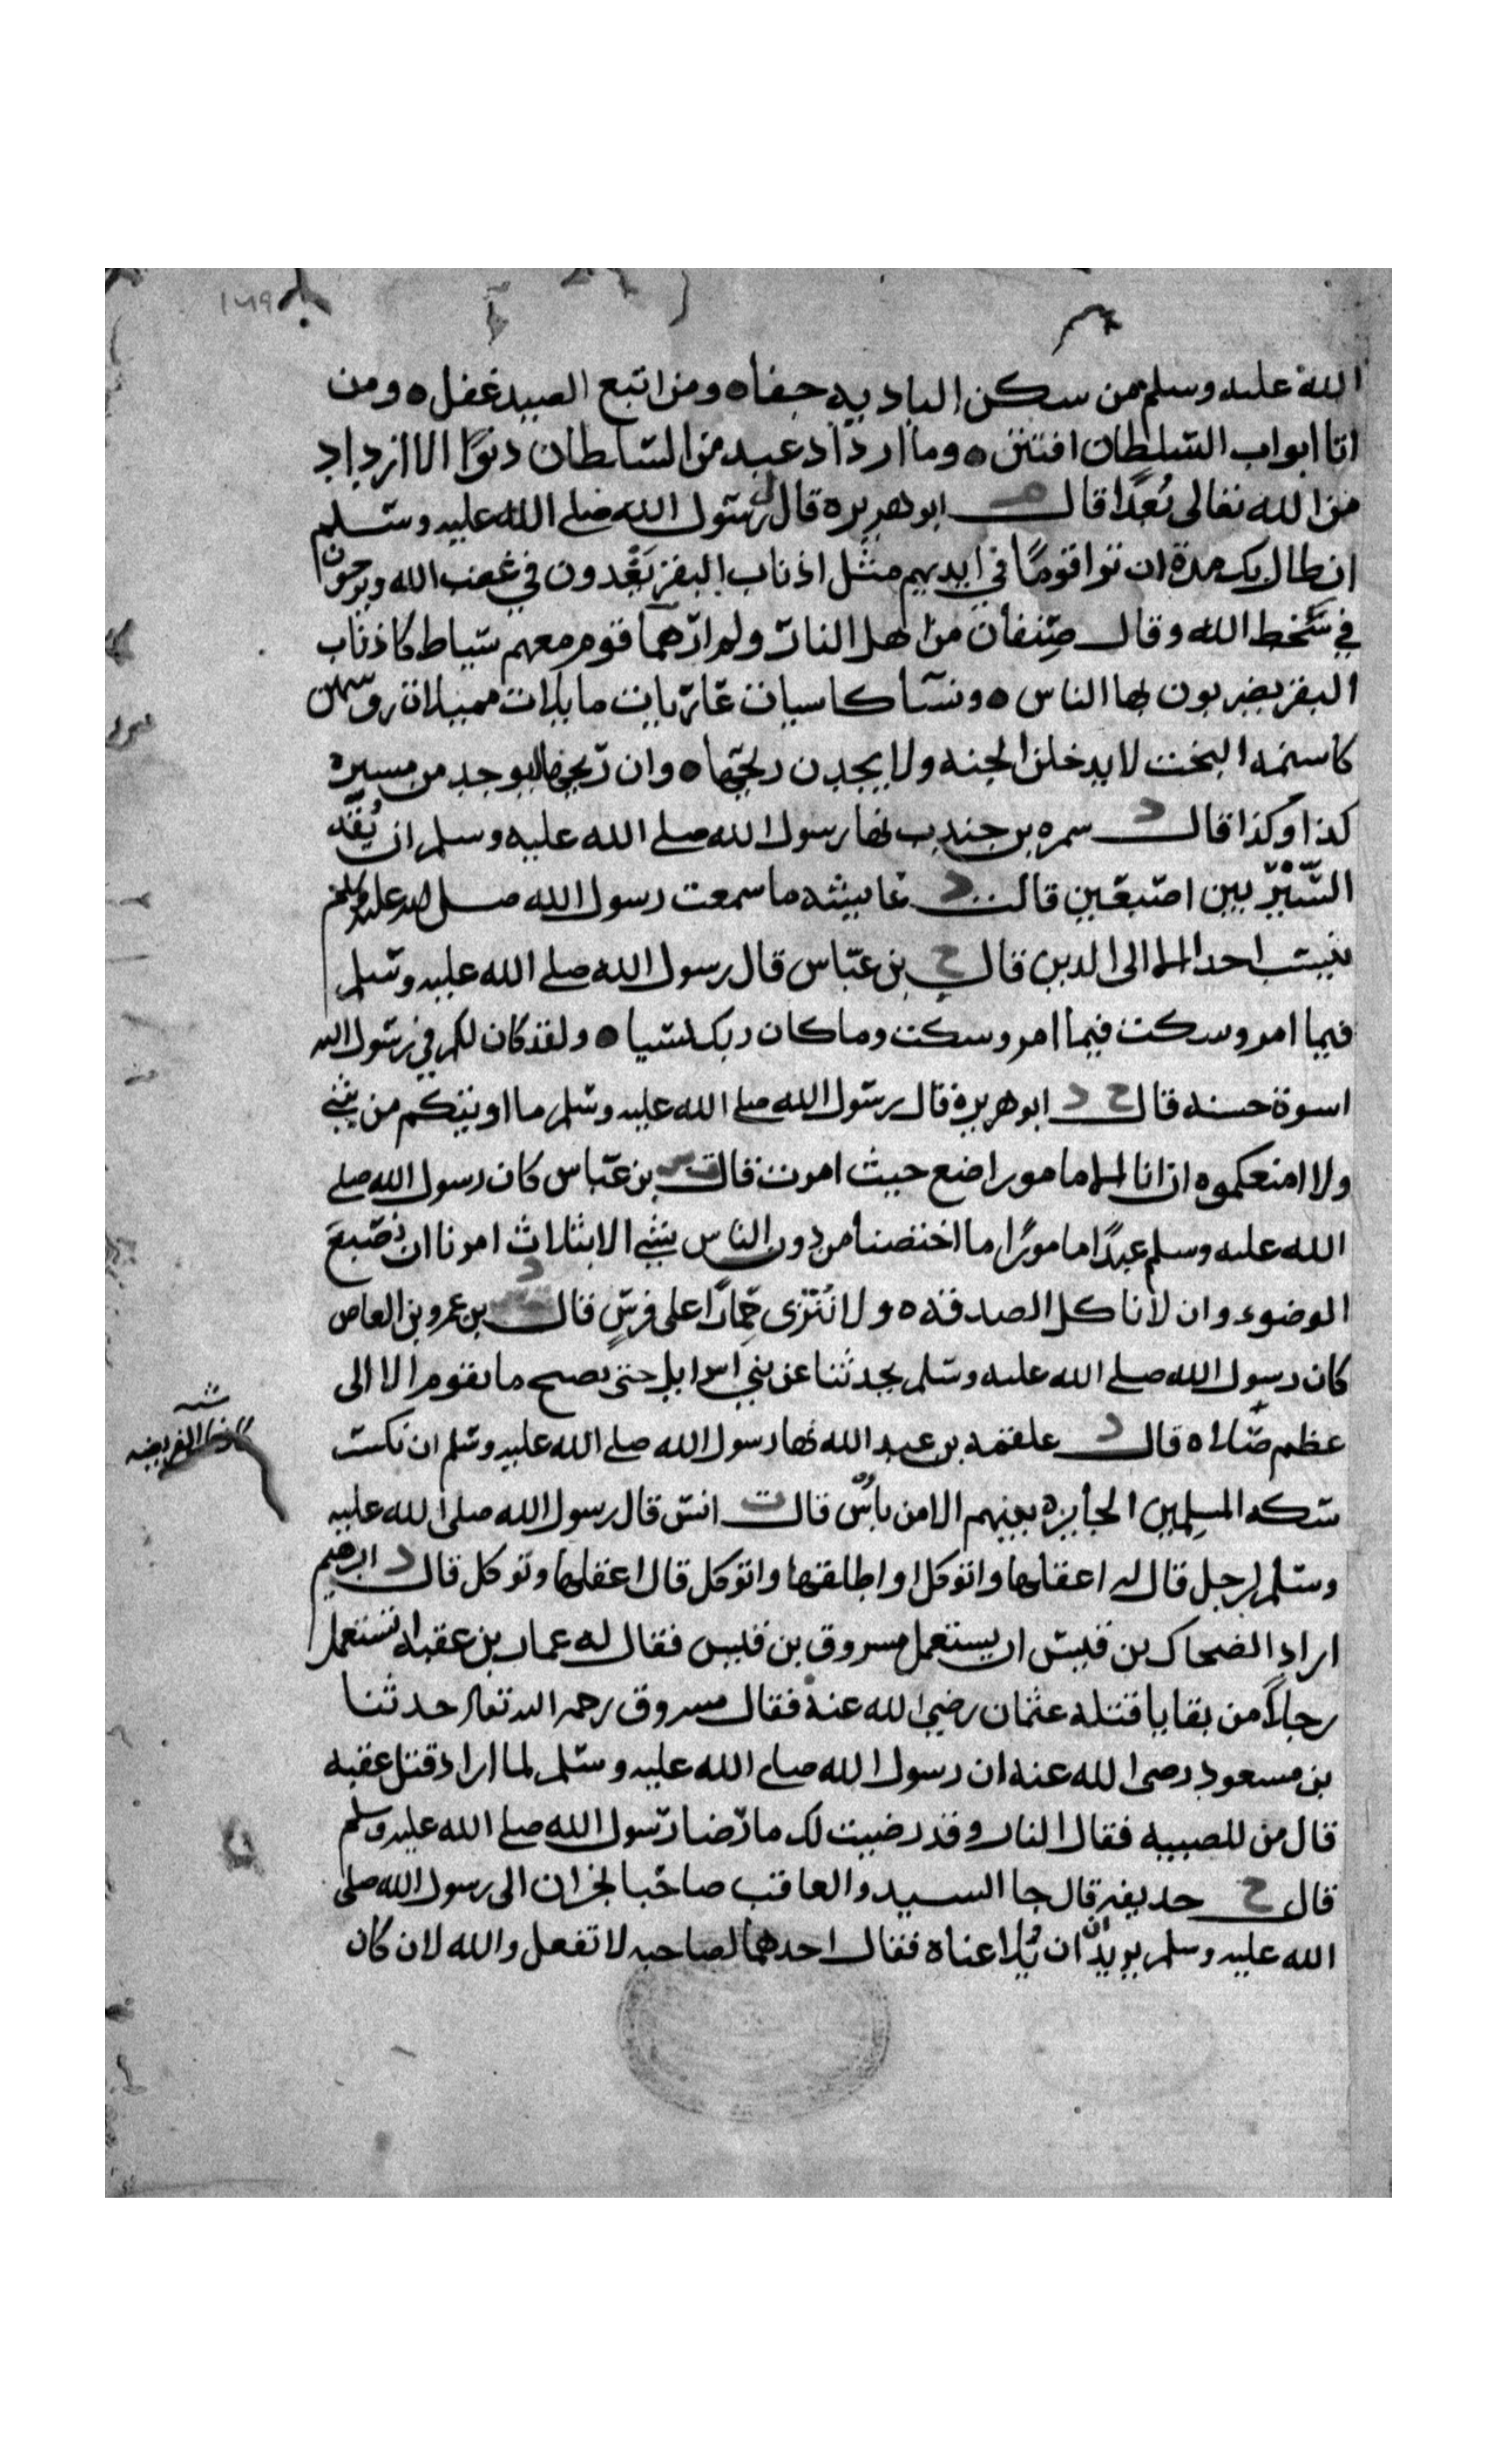 ١٦٩
الله عليه وسلم من سكن الباديه جفاه ومن اتبع الصيد غفل ه ومن
اتا ابواب السلطان افتتن ه وما ازداد عبد من السلطان دنوًا الا ازداد
من الله تعالى بُعدًا قال م ابو هريره قال رسول الله صلى الله عليه وسلم
ان طال بك مدة ان ترا قومًا في ايديهم مثل اذناب البقر يَغْدون في غضب الله ويروحون
في سَخط الله وقال صِنفان من اهل النار ولم ارَهما قوم معهم سياط كاذناب
البقر يضربون بها الناس ه ونسآ كاسيات عاريات مايلات مميلات روسهن
كاسنمة البخت لا يدخلن الجنه ولا يجدن ريحها ه وان ريحها ليوجد من مسيرة
كذا وكذا قال د سمره بن جندب نها رسول الله صلى الله عليه وسلم ان يُقَدّ
السَّيْرُ بين اصبعين قالت د عايشه ما سمعت رسول الله صلى الله عليه وسلم
ينسب احدا الا الى الدين قال ح بن عباس قال رسول الله صلى الله عليه وسلم
فيما امر وسكت فيما امر وسكت وما كان ربك نسيا ه ولقد كان لكم في رسول الله
اسوة حسنه قال ح د ابو هريره قال رسول الله صلى الله عليه وسلم ما اوتيكم من شي
ولا امنعكموه ان انا الا مامور اضع حيث امرت قال بن عباس كان رسول الله صلى
الله عليه وسلم عبدًا مامورًا ما اختصنا من دون الناس بشي الا بثلاث امرنا ان نُصبغَ
الوضوء وان لا ناكل الصدقه ه ولا نُنْزى حِمارًا على فرسٍ قال د بن عمرو بن العاص
كان رسول الله صلى الله عليه وسلم يحدثنا عن بني اسرايل حتى يصبح ما يقوم الا الى
عظم صلاه قال د علقمه بن عبد الله نها رسول الله صلى الله عليه وسلم ان نكسر
سكه المسلمين الجايزه بينهم الا من باس قال ت انس قال رسول الله صلى الله عليه
وسلم لرجل قال له اعقلها واتوكل او اطلقها واتوكل قال اعقلها وتوكل قال د ابرهيم
اراد الضحاك بن قيس ان يستعمل مسروق بن قيس فقال له عمار بن عقبه اتستعمل
رجلاً من بقايا قتلة عثمان رضي الله عنه فقال مسروق رحمه الله تعالى حدثنا
بن مسعود رضى الله عنه ان رسول الله صلى الله عليه وسلم لما اراد قتل عقبه
قال من للصبيه فقال النار وقد رضيت لك ما رضا رسول الله صلى الله عليه وسلم
قال ح حديفه قال جا السيد والعاقب صاحبا نجران الى رسول الله صلى
الله عليه وسلم يريدان ان يُلاعناه فقال احدهما لصاحبه لا تفعل والله لان كان